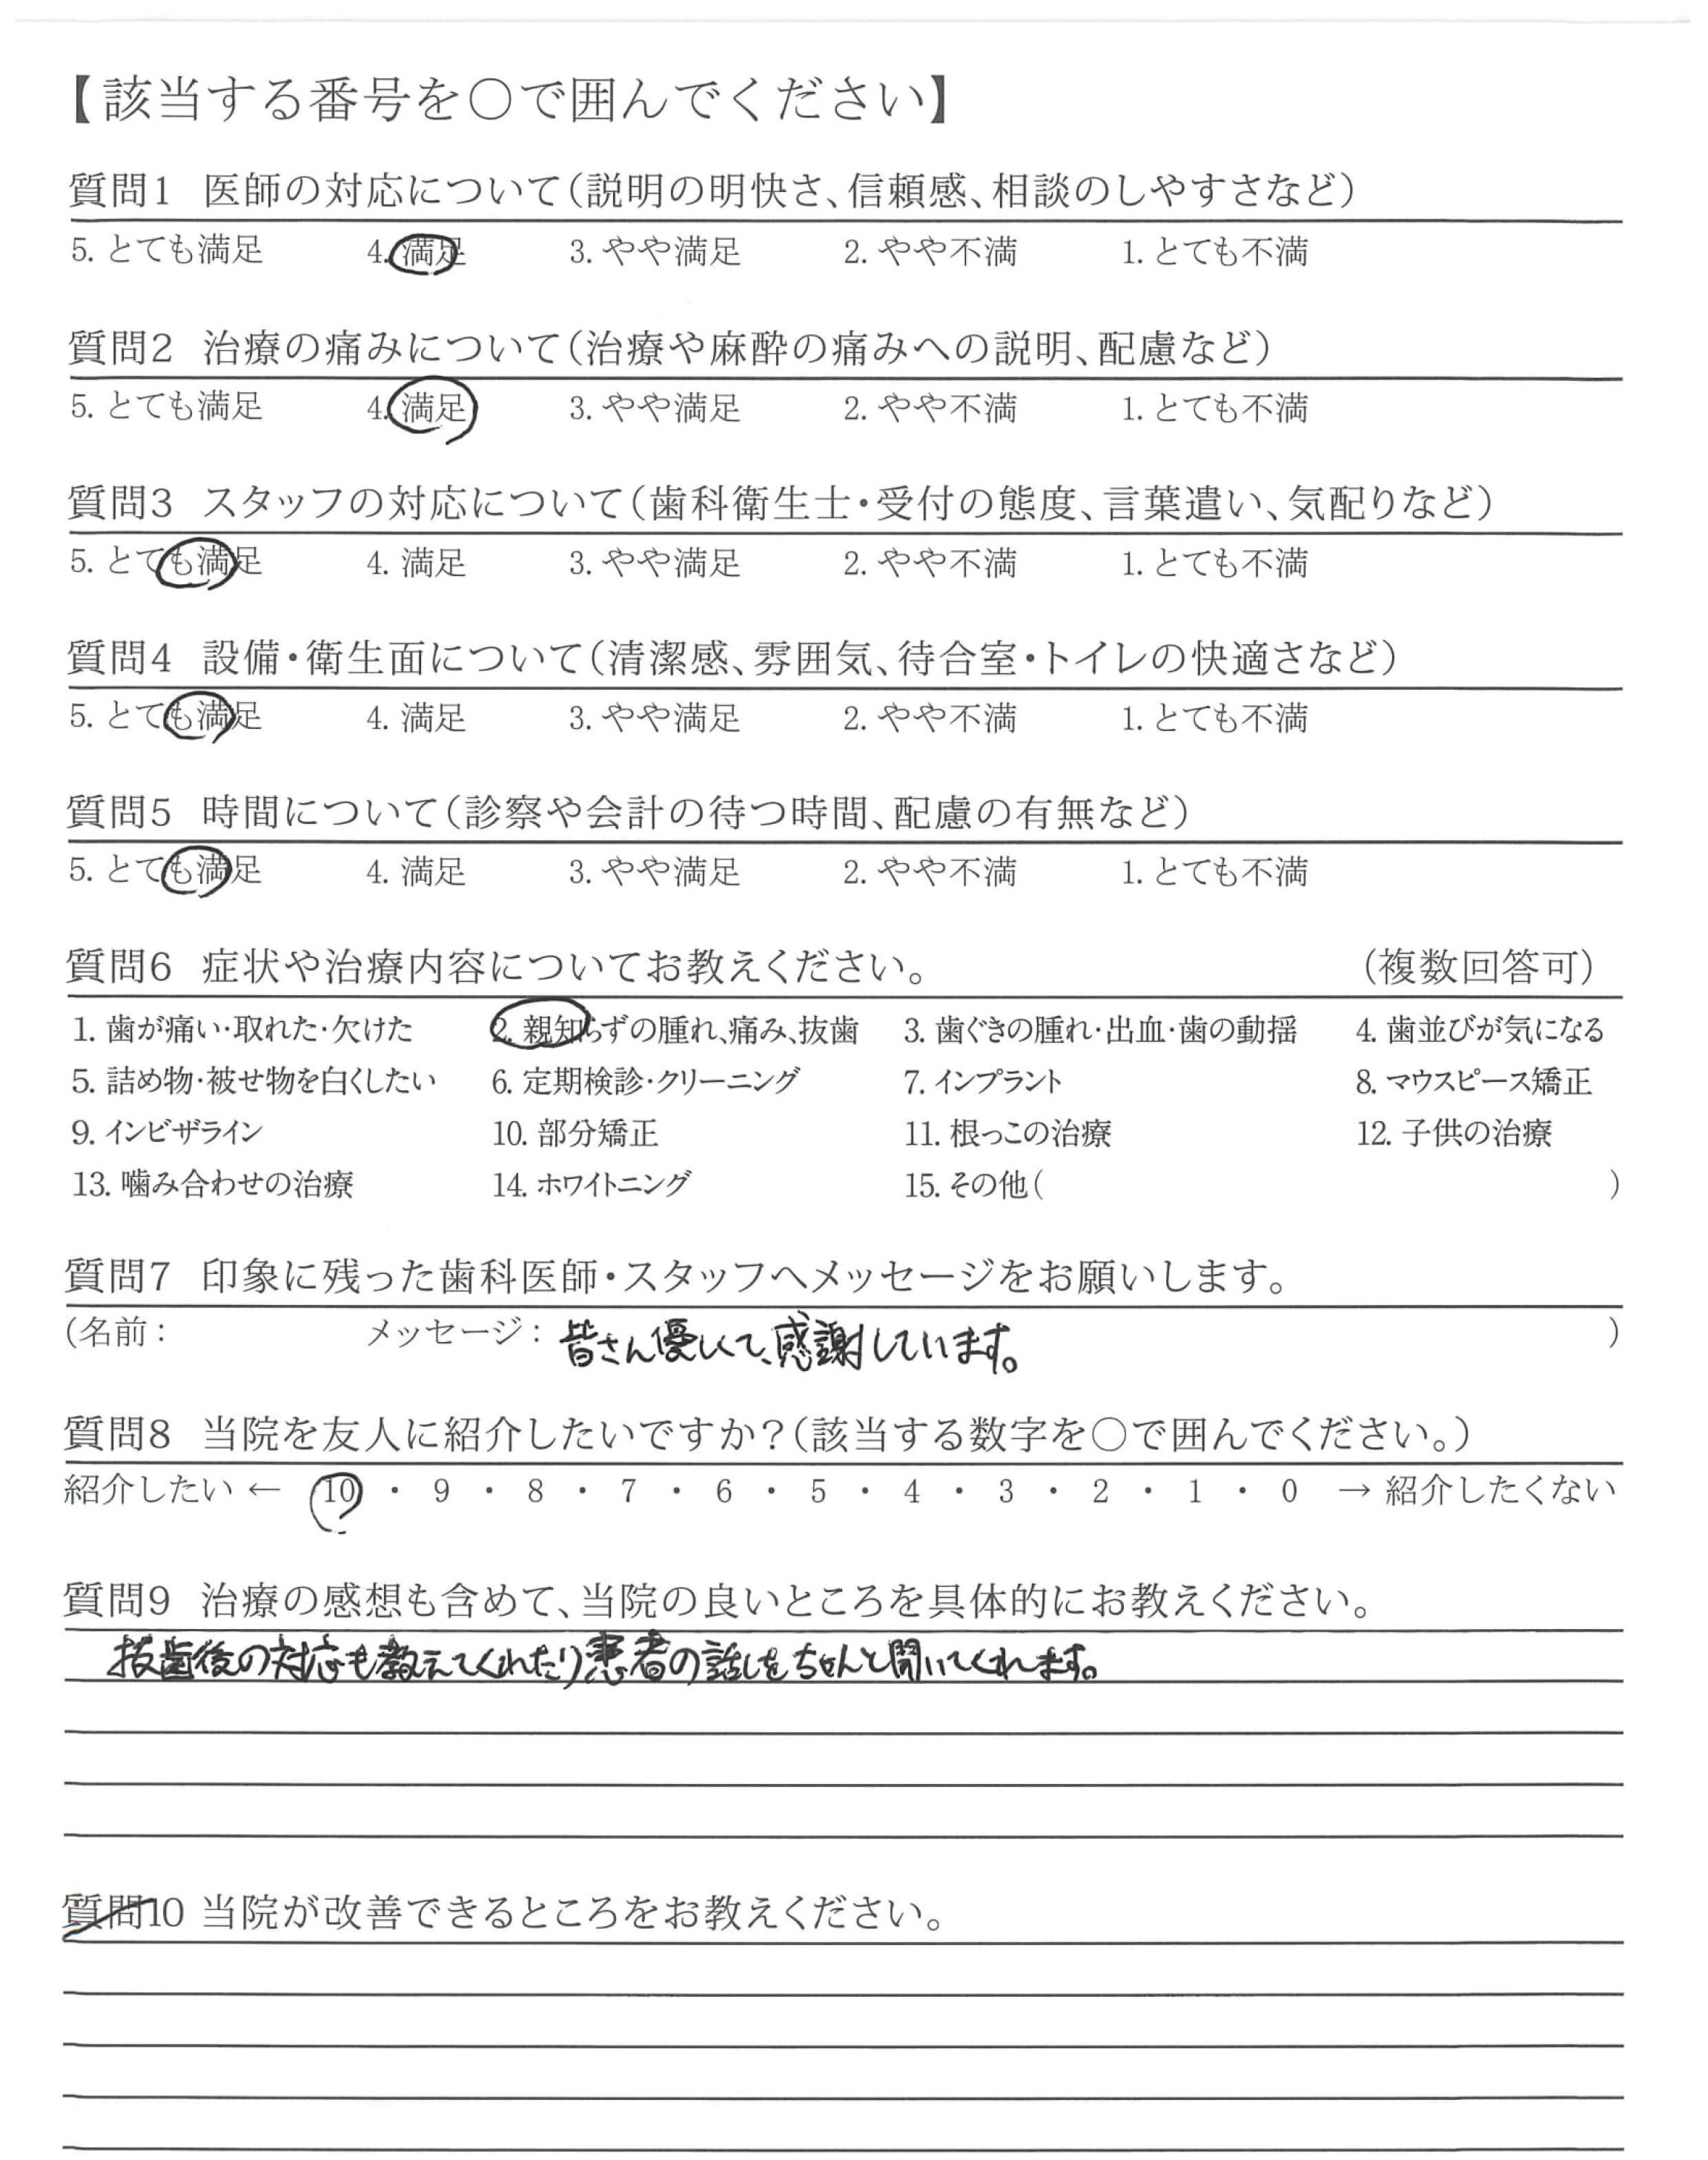 【該当する番号を○で囲んでください】
質問1 医師の対応について(説明の明快さ、信頼感、相談のしやすさなど)
5. とても満足 4. 満足 3. やや満足 2. やや不満 1. とても不満
質問2 治療の痛みについて(治療や麻酔の痛みへの説明、配慮など)
5. とても満足 4. 満足 3. やや満足 2. やや不満 1. とても不満
質問3 スタッフの対応について(歯科衛生士・受付の態度、言葉遣い、気配りなど)
5. とても満足 4. 満足 3. やや満足 2. やや不満 1. とても不満
質問4 設備・衛生面について(清潔感、雰囲気、待合室・トイレの快適さなど)
5. とても満足 4. 満足 3. やや満足 2. やや不満 1. とても不満
質問5 時間について(診察や会計の待つ時間、配慮の有無など)
5. とても満足 4. 満足 3. やや満足 2. やや不満 1. とても不満
質問6 症状や治療内容についてお教えください。 (複数回答可)
1. 歯が痛い・取れた・欠けた 2. 親知らずの腫れ、痛み、抜歯 3. 歯ぐきの腫れ・出血・歯の動揺 4. 歯並びが気になる
5. 詰め物・被せ物を白くしたい 6. 定期検診・クリーニング 7. インプラント 8. マウスピース矯正
9. インビザライン 10. 部分矯正 11. 根っこの治療 12. 子供の治療
13. 噛み合わせの治療 14. ホワイトニング 15. その他( )
質問7 印象に残った歯科医師・スタッフへメッセージをお願いします。
(名前: メッセージ: 皆さん優しくて、感謝しています。 )
質問8 当院を友人に紹介したいですか?(該当する数字を○で囲んでください。)
紹介したい ← 10 ・ 9 ・ 8 ・ 7 ・ 6 ・ 5 ・ 4 ・ 3 ・ 2 ・ 1 ・ 0 → 紹介したくない
質問9 治療の感想も含めて、当院の良いところを具体的にお教えください。
抜歯後の対応も教えてくれたり患者の話しをちゃんと聞いてくれます。
質問10 当院が改善できるところをお教えください。